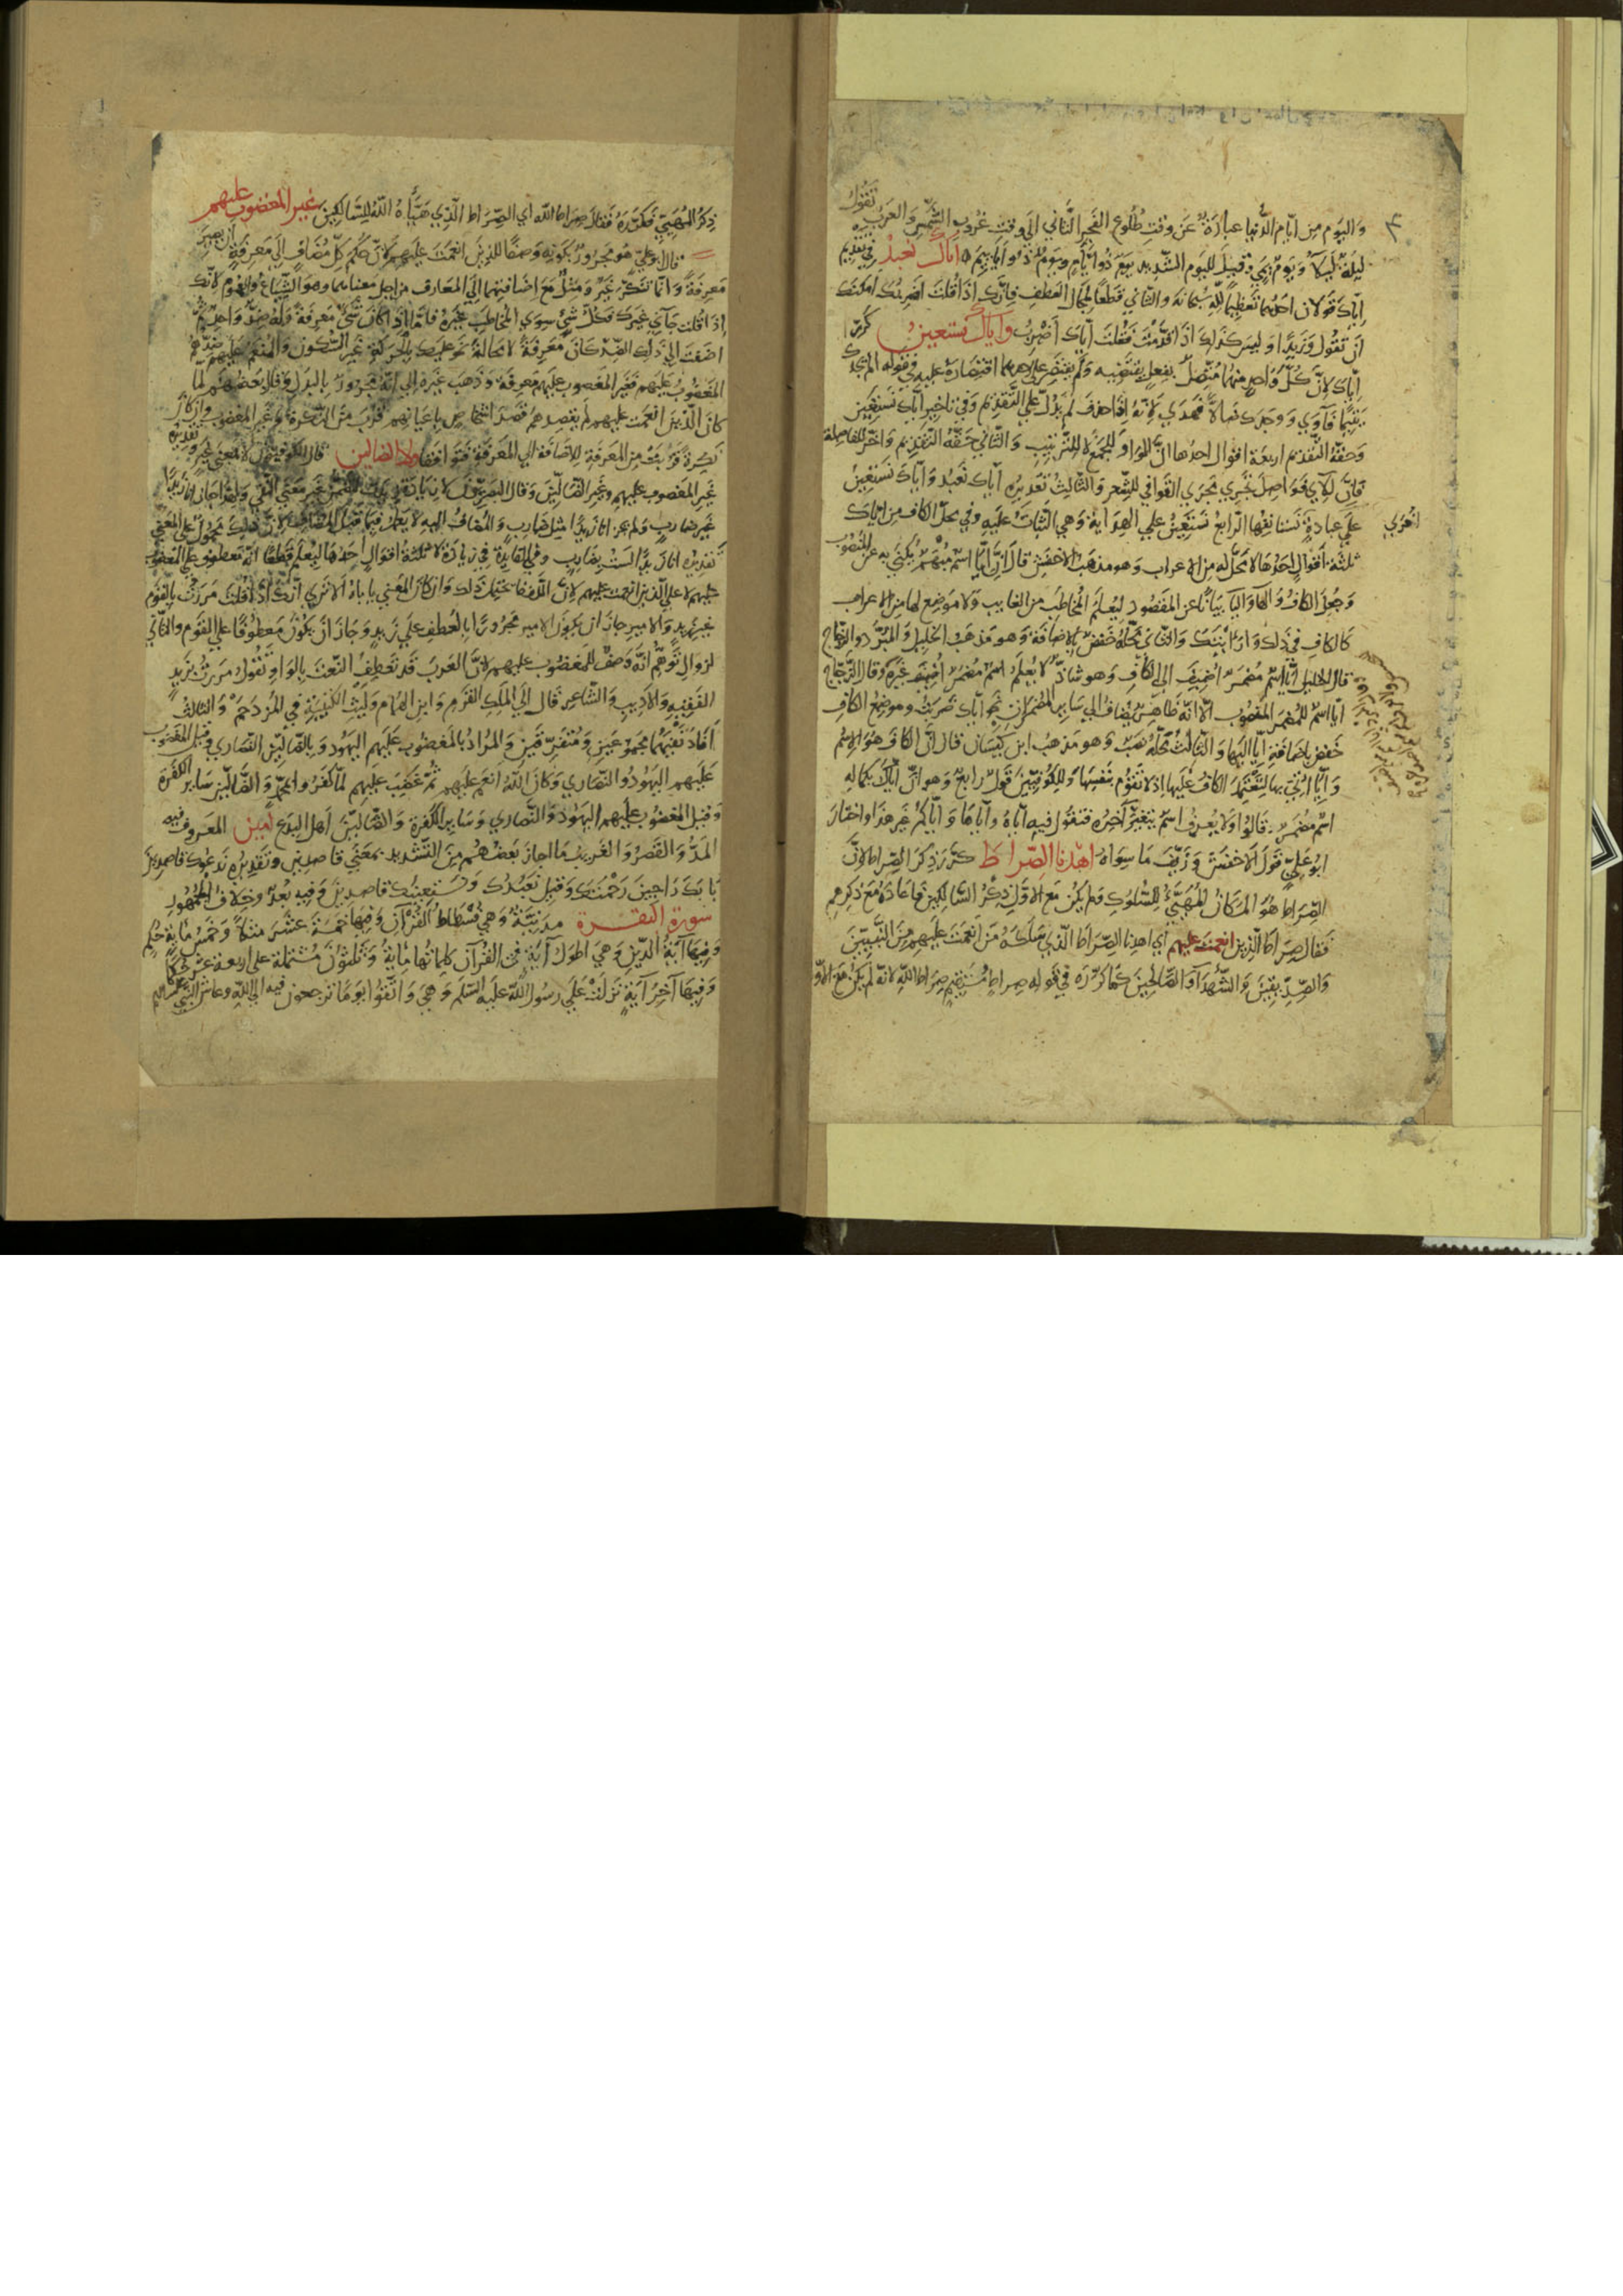 واليوم من ايام الدنيا عبارة عن وقت طلوع الفجر الثاني الي وقت غروب الشمس والعرب تقول
ليلة ليلاء ويوم ايوم وقيل لليوم الشديد يوم ذو ايام ويوم ذو اياييم اياك نعبد في تقديم
اياك قولان احدهما تعظيما لله سبحانه والثاني قطعا لمجال العطف فانك اذا قلت اضربك امكنك
ان تقول وزيدا وليس كذلك اذا قدمت فقلت اياك اضرب واياك نستعين كرر
اياك لان كل واحد منهما متصل بفعل يقتضيه ولم يقتصر علي احدهما اقتصاره عليه في قوله الم يجدك
يتيما فآوي ووجدك ضالا فهدي لانه اذا حذف لم يدل علي التقديم وفي تاخير اياك نستعين
وحقه التقديم اربعة اقوال احدها ان الواو للجمع لا للترتيب والثاني حقه التقديم واخر للفاصلة
فان لآي فواصل تجري مجري القوافي للشعر والثالث تقديره اياك نعبد واياك نستعين
علي عبادة نستانفها الرابع نستعين علي الهداية وهي الثبات عليه وفي محل الكاف من اياك
ثلثة اقوال احدها لا محل له من الاعراب وهو مذهب الاخفش قال ان ايا اسم مبهم يكني به عن المنصوب
وجعل الكاف والها واليا بيانا عن المقصود ليعلم المخاطب من الغايب ولا موضع لها من الاعراب
كالكاف في ذلك وارايتك والثاني محله خفض بالاضافة وهو مذهب الخليل والمبرد والزجاج
قال الخليل ايا اسم مضمر اضيف الي الكاف وهو شاذ لا يعلم اسم مضمر اضيف غيره وقال الزجاج
ايا اسم للمضمر المنصوب الا انه ظاهر يضاف الي ساير المضمرات نحو اياك ضربت وموضع الكاف
خفض باضافة ايا اليها والثالث محله نصب وهو مذهب ابن كيسان قال ان الكاف هو الاسم
وايا اتي بها لتعتمد الكاف عليها اذ لا تقوم بنفسها وللكوفيين قول رابع وهو ان اياك بكماله
اسم مضمر قالوا ولا يعرف اسم يتغير آخره فتقول فيه اياه واياها واياكم غير هذا واختار
ابو علي قول الاخفش وزيف ما سواه اهدنا الصراط كرر ذكر الصراط لان
الصراط هو المكان المهيئ للسلوك ولم يكن مع الاول ذكر السالكين فاعاده مع ذكرهم
فقال صراط الذين انعمت عليهم اي اهدنا الصراط الذي سلكه من انعمت عليهم من النبيين
والصديقين والشهدآ والصالحين كما كرره في قوله صراط مستقيم صراط الله لانه لم يكن مع الاول
ذكر المهيئ فكرره فقال صراط الله اي الصراط الذي هيأه الله للسالكين غير المغضوب عليهم
قال ابو علي هو مجرور بكونه وصفا للذين انعمت عليهم لان حكم كل مضاف الي معرفة ان يصير
معرفة وانما تنكر غير ومثل مع اضافتهما الي المعارف من اجل معناهما وهو الشياع والعموم لانك
اذا قلت جآني غيرك فكل شئ سوي المخاطب غيره فاما اذا كان شئ معرفة وله ضد واحد ثم
اضفت الي ذلك الضد كان معرفة لا محالة نحو عليك بالحركة غير السكون والمنعم عليهم ضدهم
المغضوب عليهم فغير المغضوب عليهم معرفة وذهب غيره الي انه مجرور بالبدل وقال بعضهم لما
كان الذين انعمت عليهم لم يقصدهم قصد اشخاص باعيانهم قرب من النكرة وغير المغضوب وان كان
نكرة قربت من المعرفة للاضافة الي المعرفة فتوافقا ولا الضالين قال الكوفيون لا بمعني غير وتقديره
غير المغضوب عليهم وغير الضالين وقال البصريون لا زيادة
غير ضارب ولم يجز انا زيدا مثل ضارب والمضاف اليه لا يعمل فيما قبل المضاف لان ذلك محمول علي المعني
تقديره انا زيدا لست بضارب وفي الفايدة في زيادة لا ثلثة اقوال احدها ليعلم قطعا انه معطوف علي المغضوب
عليهم لا علي الذين انعمت عليهم لان اللفظ يحتمل ذلك وان كان المعني ياباه الا تري انك اذا قلت مررت بالقوم
غير زيد والامير جاز ان يكون الامير مجرورا بالعطف علي زيد وجاز ان يكون معطوفا علي القوم والثاني
لزوال توهم انه وصف للمغضوب عليهم لان العرب قد تعطف النعت بالواو تقول مررت بزيد
الفقيه والاديب والشاعر قال الي الملك القرم وابن الهمام وليث الكتيبة في المزدحم والثالث
افاد نفيهما مجموعين ومتفرقين والمراد بالمغضوب عليهم اليهود وبالضالين النصاري وقيل المغضوب
عليهم اليهود والنصاري وكان الله انعم عليهم ثم غضب عليهم لما كفروا بمحمد والضالين ساير الكفرة
وقيل المغضوب عليهم اليهود والنصاري وساير الكفرة والضالين اهل البدع آمين المعروف فيه
المد والقصر والغريب ما اجاز بعضهم من التشديد بمعني قاصدين وتقديره ندعوك قاصدين
بابك راجين رحمتك وقيل نعبدك ونستعينك قاصدين وفيه بعد وخلاف الجمهور
سورة البقرة مدنية وهي فسطاط القرآن وفيها خمسة عشر مثلا وخمس مائة حكم
وفيها آية الدين وهي اطول آية في القرآن كلماتها مائة وثلثون مشتملة علي اربعة عشر حكما
وفيها آخر آية نزلت علي رسول الله عليه السلم وهي واتقوا يوما ترجعون فيه الي الله وعاش النبي